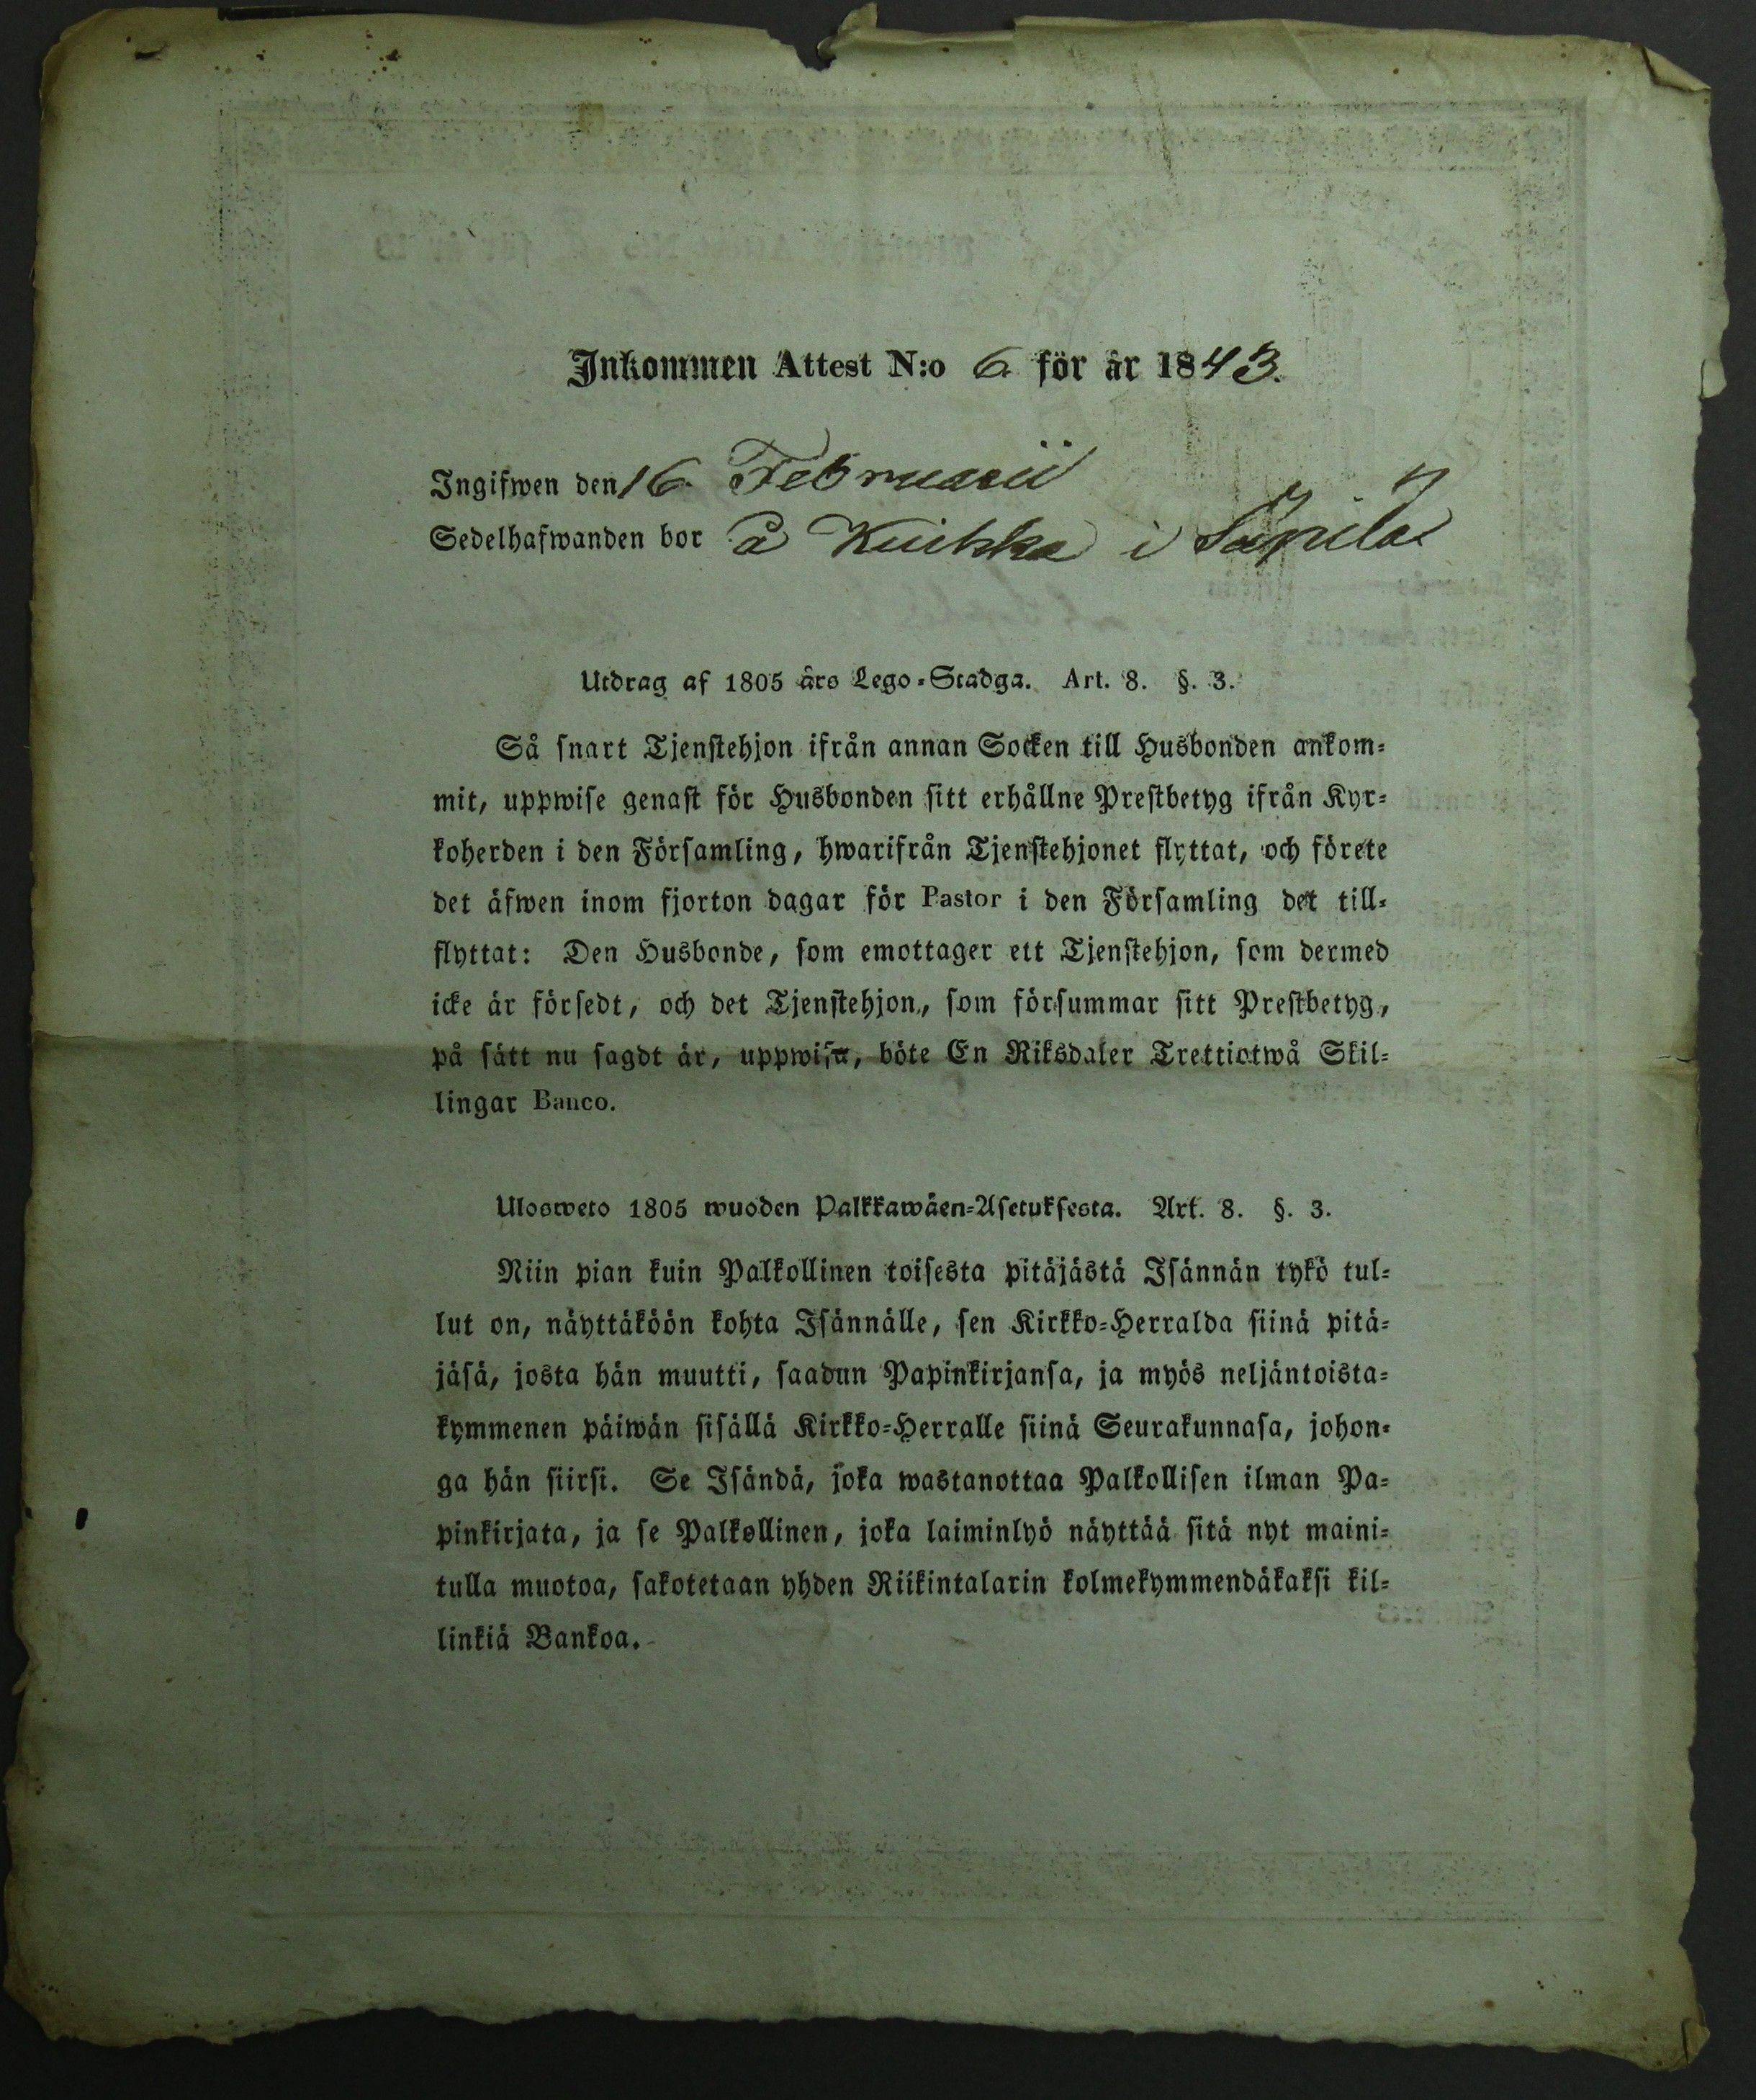 Inkommen Attest N:o 6 för år 1843.
Ingifwen den 16 Februarii
Sedelhafwanden bor å Kuikka i Säpilä
Utdrag af 1805 års Lego-Stadga. Art. 8. §. 3.
Så snart Tjenstehjon ifrån annan Socken till Husbonden ankom-
mit, uppwise genast för Husbonden sitt erhållne Prestbetyg ifrån Kyr-
koherden i den Församling, hwarifrån Tjenstehjonet flyttat, och förete
det äfwen inom fjorton dagar för Pastor i den Församling det till-
flyttat: Den Husbonde, som emottager ett Tjenstehjon, som dermed
icke är försedt, och det Tjenstehjon, som försummar sitt Prestbetyg,
på sätt nu sagdt är, uppwisa, böte En Riksdaler Trettiotwå Skil-
lingar Banco.
Ulosweto 1805 wuoden Palkkawäen-Asetuksesta. Art. 8. §. 3.
Niin pian kuin Palkollinen toisesta pitäjästä Isännän tykö tul-
lut on, näyttäköön kohta Isännälle, sen Kirkko-Herralda siinä pitä-
jäsä, josta hän muutti, saadun Papinkirjansa, ja myös neljäntoista-
kymmenen päiwän sisällä Kirkko-Herralle siinä Seurakunnasa, johon-
ga hän siirsi. Se Isändä, joka wastanottaa Palkollisen ilman Pa-
pinkirjata, ja se Palkollinen, joka laiminlyö näyttää sitä nyt maini-
tulla muotoa, sakotetaan yhden Riikintalarin kolmekymmendäkaksi kil-
linkiä Bankoa.